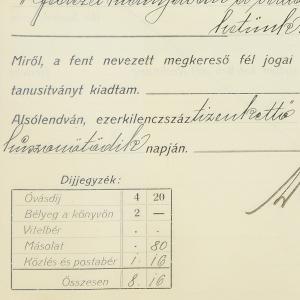 hetünk.
Miről, a fent nevezett megkereső fél jogai
tanusitványt kiadtam.
Alsólendván, ezerkilenczszáz tizenkettő
huszonötödik napján.
Dijjegyzék:
Óvásdíj 4 20
Bélyeg a könyvön 2 —
Vitelbér . .
Másolat . 80
Közlés és postabér 1. 16
Összesen 8. 16